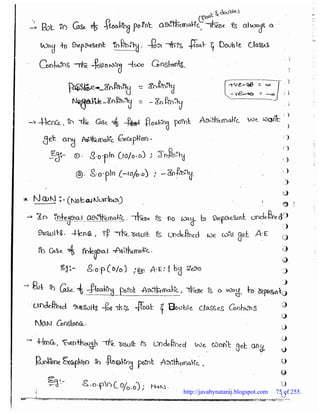 (float & doubles)
→ But in Case of floating point arithmetic, There is always a
way to Represent infinity. For this float & Double Classes
Contains The following two Constants.
Positive_Infinity = Infinity
Negative_Infinity = - Infinity
+ve = ∞
-ve = -∞
→ Hence, in The Case of floating point Arithmetic we won't
get any Arithmetic Exception.
Eg:- ①. S.o.pln (10/0.0) ; Infinity
②. S.o.pln (-10/0.0) ; - Infinity.
* NaN :- (Not a Number)
→ In integral arithmetic. There is no way to Represent undefined
Results. Hence, if The result is Undefined we will get A.E
in Case of integral Arithmetic.
Eg:- S.o.p (0/0) ; A.E : / by zero
→ But in Case of floating point Arithmetic, There is a way to Represent
undefined results for this float & Double classes Contains
NaN Constant.
→ Hence, Eventhough The result is Undefined we won't get any
Runtime Exception in floating point Arithmetic.
Eg:- S.o.pln (0/0.0) ; NaN.
http://javabynataraj.blogspot.com 75 of 255.